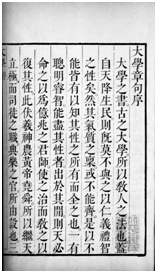 大學章句序
大學之書古之大學所以教人之法也蓋
自天降生民則既莫不與之以仁義禮智
之性矣然其氣質之稟或不能齊是以不
能皆有以知其性之所有而全之也一有
聰明睿智能盡其性者出於其間則天必
命之以爲億兆之君師使之治而教之以
復其性此伏羲神農黃帝堯舜所以繼天
立極而司徒之職典樂之官所由設也三